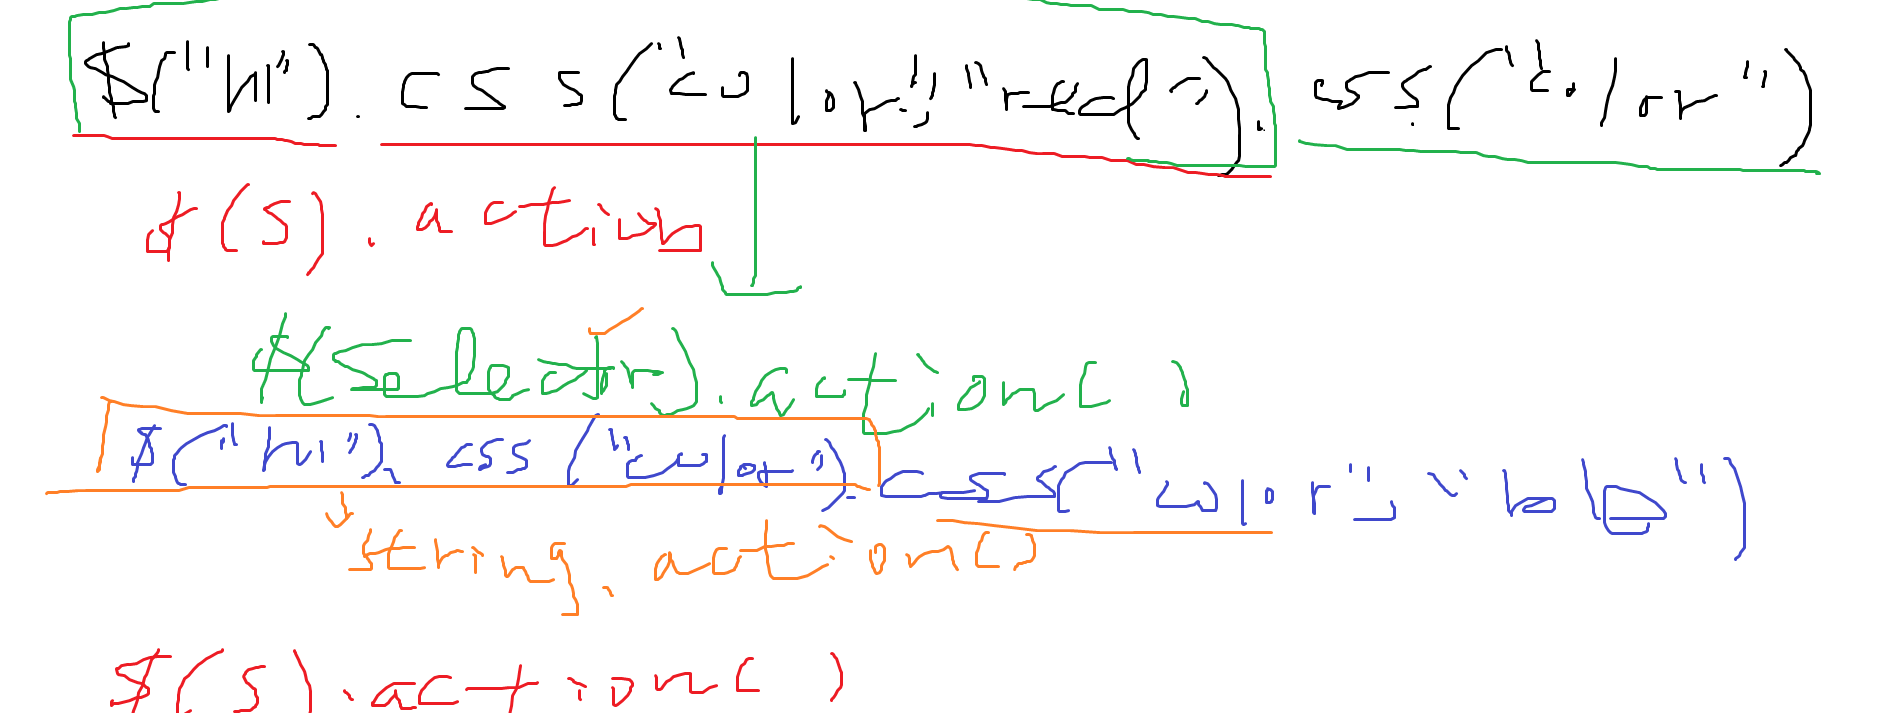 $("h1").css("color","red").css("color")
$(s).action
$(selector).action()
$("h1").css("color").css("color","blue")
string.action()
$(s).action()